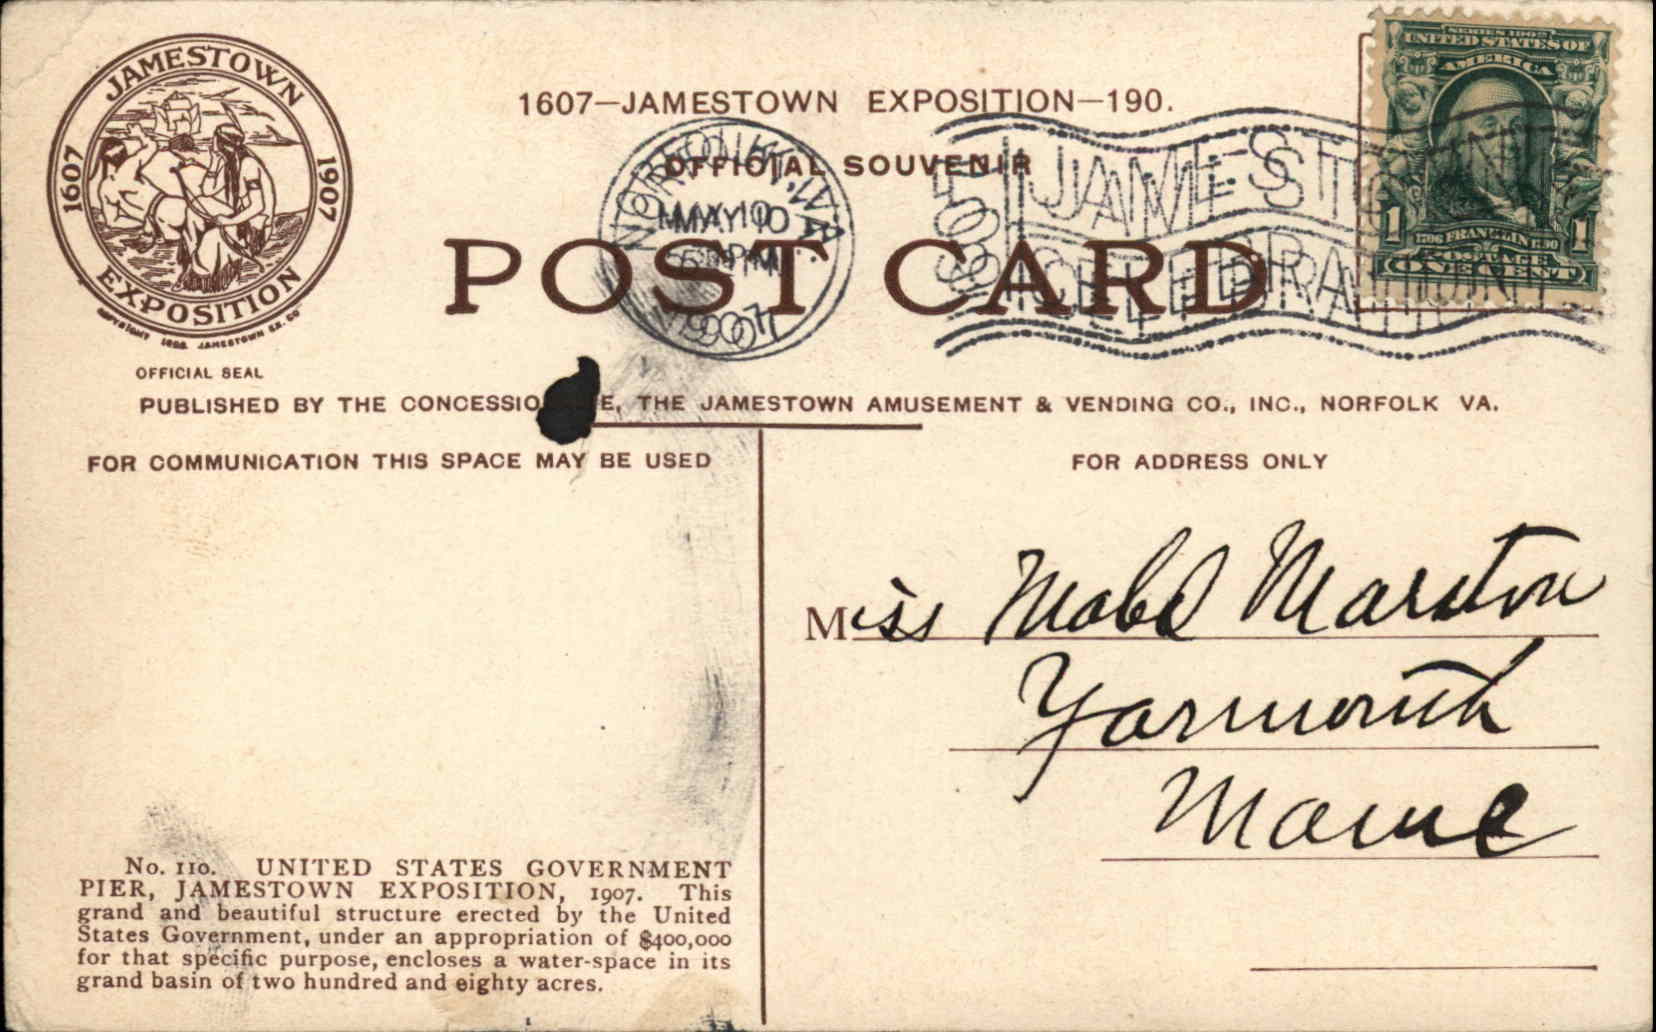 JAMESTOWN
1607 1907
EXPOSITION
COPYRIGHT 1906 JAMESTOWN EX. CO
OFFICIAL SEAL
1607—JAMESTOWN EXPOSITION—190.
OFFICIAL SOUVENIR
POST CARD
NORFOLK, VA.
MAY 10
PM
1907
JAMESTOWN
CELEBRATION
SERIES 1902
UNITED STATES OF
AMERICA
1 1
1706 FRANKLIN 1790
POSTAGE
ONE CENT
PUBLISHED BY THE E, THE JAMESTOWN AMUSEMENT & VENDING CO., INC., NORFOLK VA.
FOR COMMUNICATION THIS SPACE MAY BE USED
FOR ADDRESS ONLY
Miss Mabel Marston
Yarmouth
Maine
No. 110. UNITED STATES GOVERNMENT
PIER, JAMESTOWN EXPOSITION, 1907. This
grand and beautiful structure erected by the United
States Government, under an appropriation of $400,000
for that specific purpose, encloses a water-space in its
grand basin of two hundred and eighty acres.